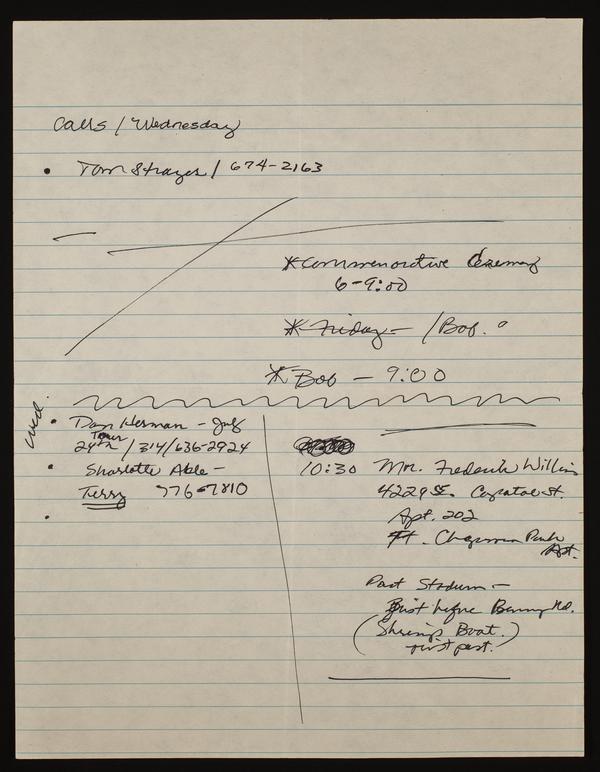 Calls / Wednesday
• Tom Strayer / 674-2163
*Commemorative Ceremony
6-9:00
*Friday- / Bob.
*Bob - 9:00
Wed.
• Dan Herman - July
24th / 314/636-2924
• Sharlotte Able -
Terry 776-7810
•
10:30 Mr. Frederick Willis
4229 St.
Apt. 202
Ft. Chapman Park
Apt.
Past Stadium -
Just before Benning Rd.
(Shrimp Boat.)
just past.